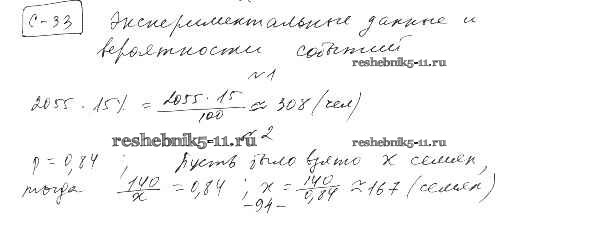 С-33 Экспериментальные данные и
вероятности событий
reshebnik5-11.ru
№1
2055 · 15% = 2055 · 15 / 100 ≈ 308 (чел)
reshebnik5-11.ru №2 reshebnik5-11.ru
p = 0,84 ; Пусть было взято x семян,
тогда 140 / x = 0,84 ; x = 140 / 0,84 ≈ 167 (семян)
-94-